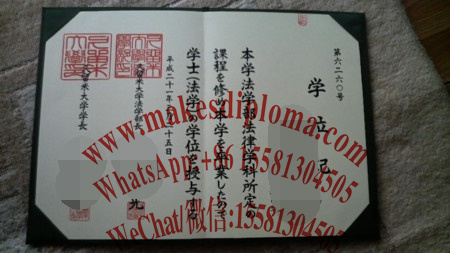 第六二六〇号
学位記
本学法学部法律学科所定の
課程を修め本学を卒業したので
学士（法学）の学位を授与する
平成二十一年 十五日
久留米大学法学部長
久留米大学学長
www.makesdiploma.com
WhatsApp:+86 15581304505
WeChat/微信:15581304505